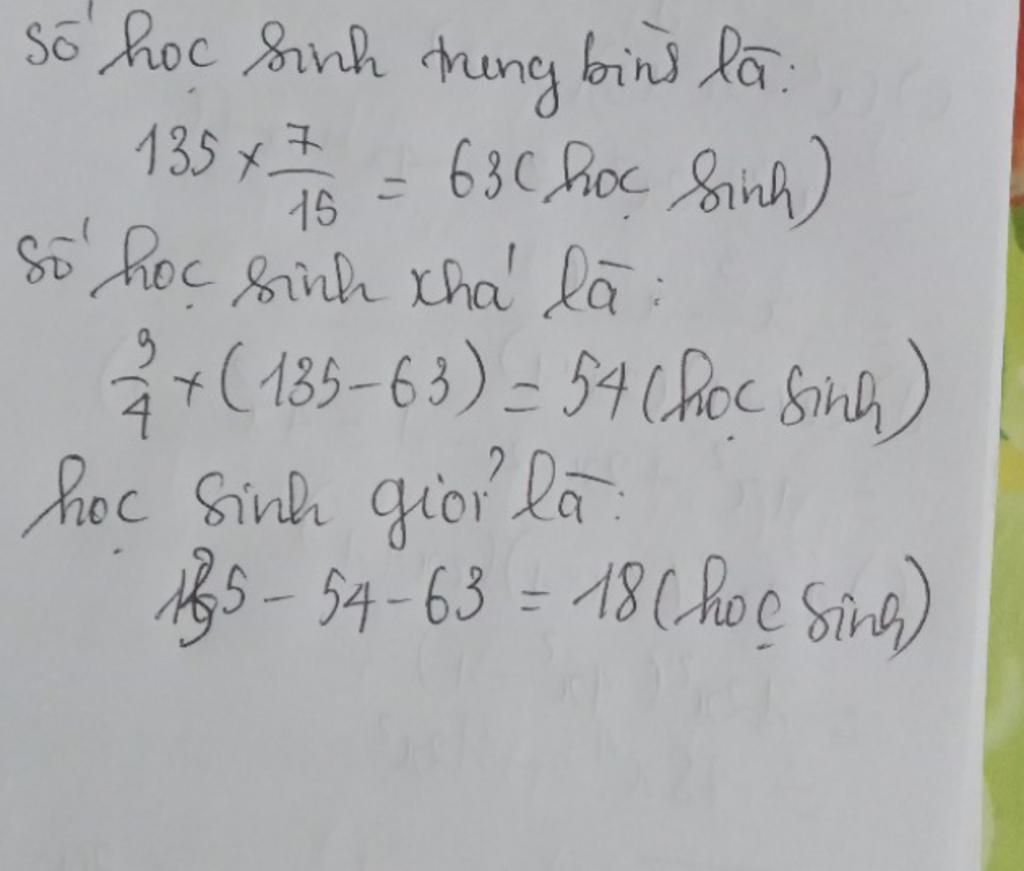 Số học sinh trung bình là:
135 × 7/15 = 63 (học sinh)
Số học sinh khá là:
3/4 × (135 - 63) = 54 (học sinh)
học sinh giỏi là:
135 - 54 - 63 = 18 (học sinh)